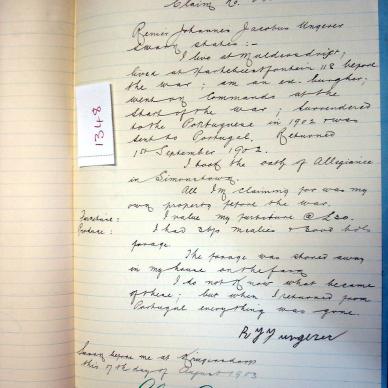 Claim No.
Renier Johannes Jacobus Ungerer
Sworn states:-
I live at Muldersdrift;
lived at Hartebeestfontein 118 before
the war; am an ex. burgher;
went on Commando at the
start of the war; surrendered
to the Portuguese in 1902 & was
sent to Portugal. Returned
1st September 1902.
I took the oath of Allegiance
in Simonstown.
All I'm claiming for was my
own property before the war.
Furniture: I value my furniture @ £30.
Produce: I had 3 bgs mealies & 5000 bdls
forage.
The forage was stored away
in my house on the farm
I do not know what became
of these; but when I returned from
Portugal everything was gone.
RJJ Ungerer
Sworn before me at Krugersdorp
this 17th day of August 1903
1348